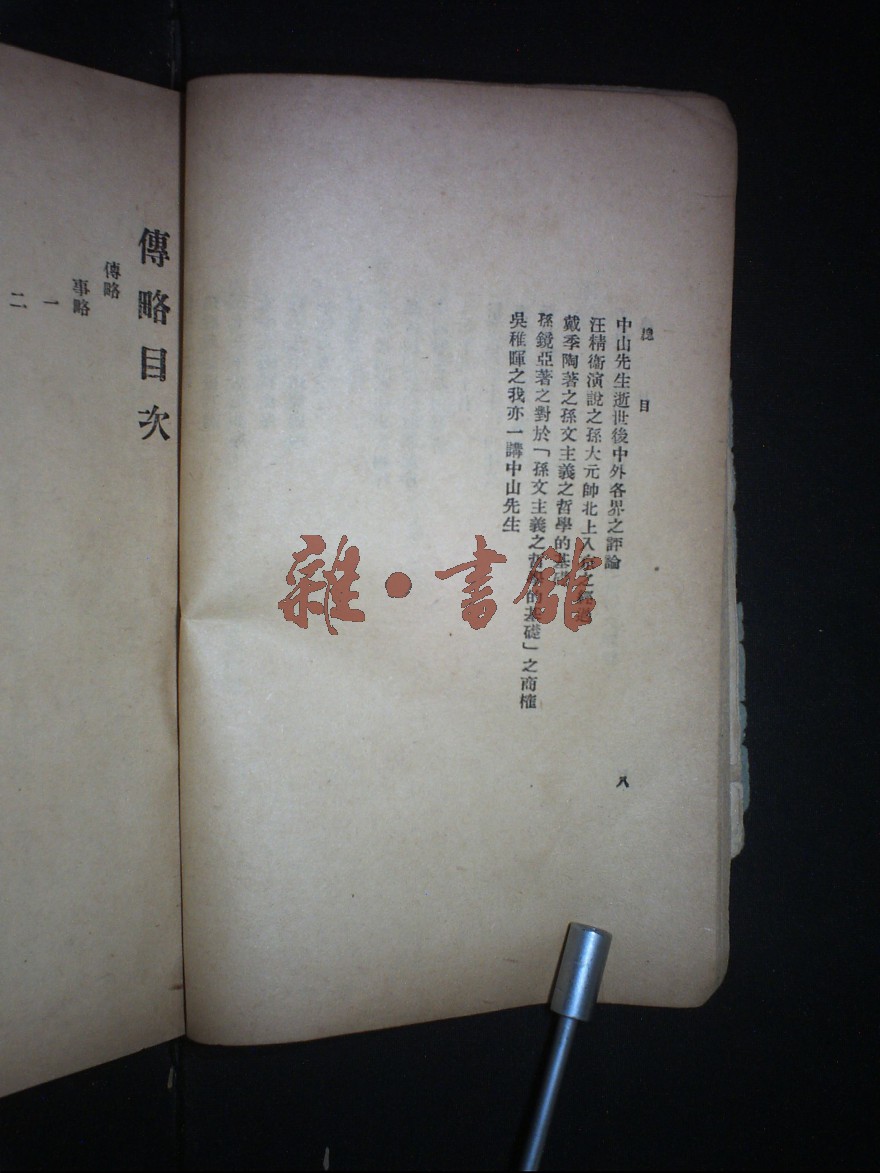 總目
中山先生逝世後中外各界之評論
汪精衞演說之孫大元帥北上入京之經過
戴季陶著之孫文主義之哲學的基礎
孫鏡亞著之對於「孫文主義之哲學的基礎」之商榷
吳稚暉之我亦一講中山先生
八
傳略目次
傳略
事略
一
二
雜·書館